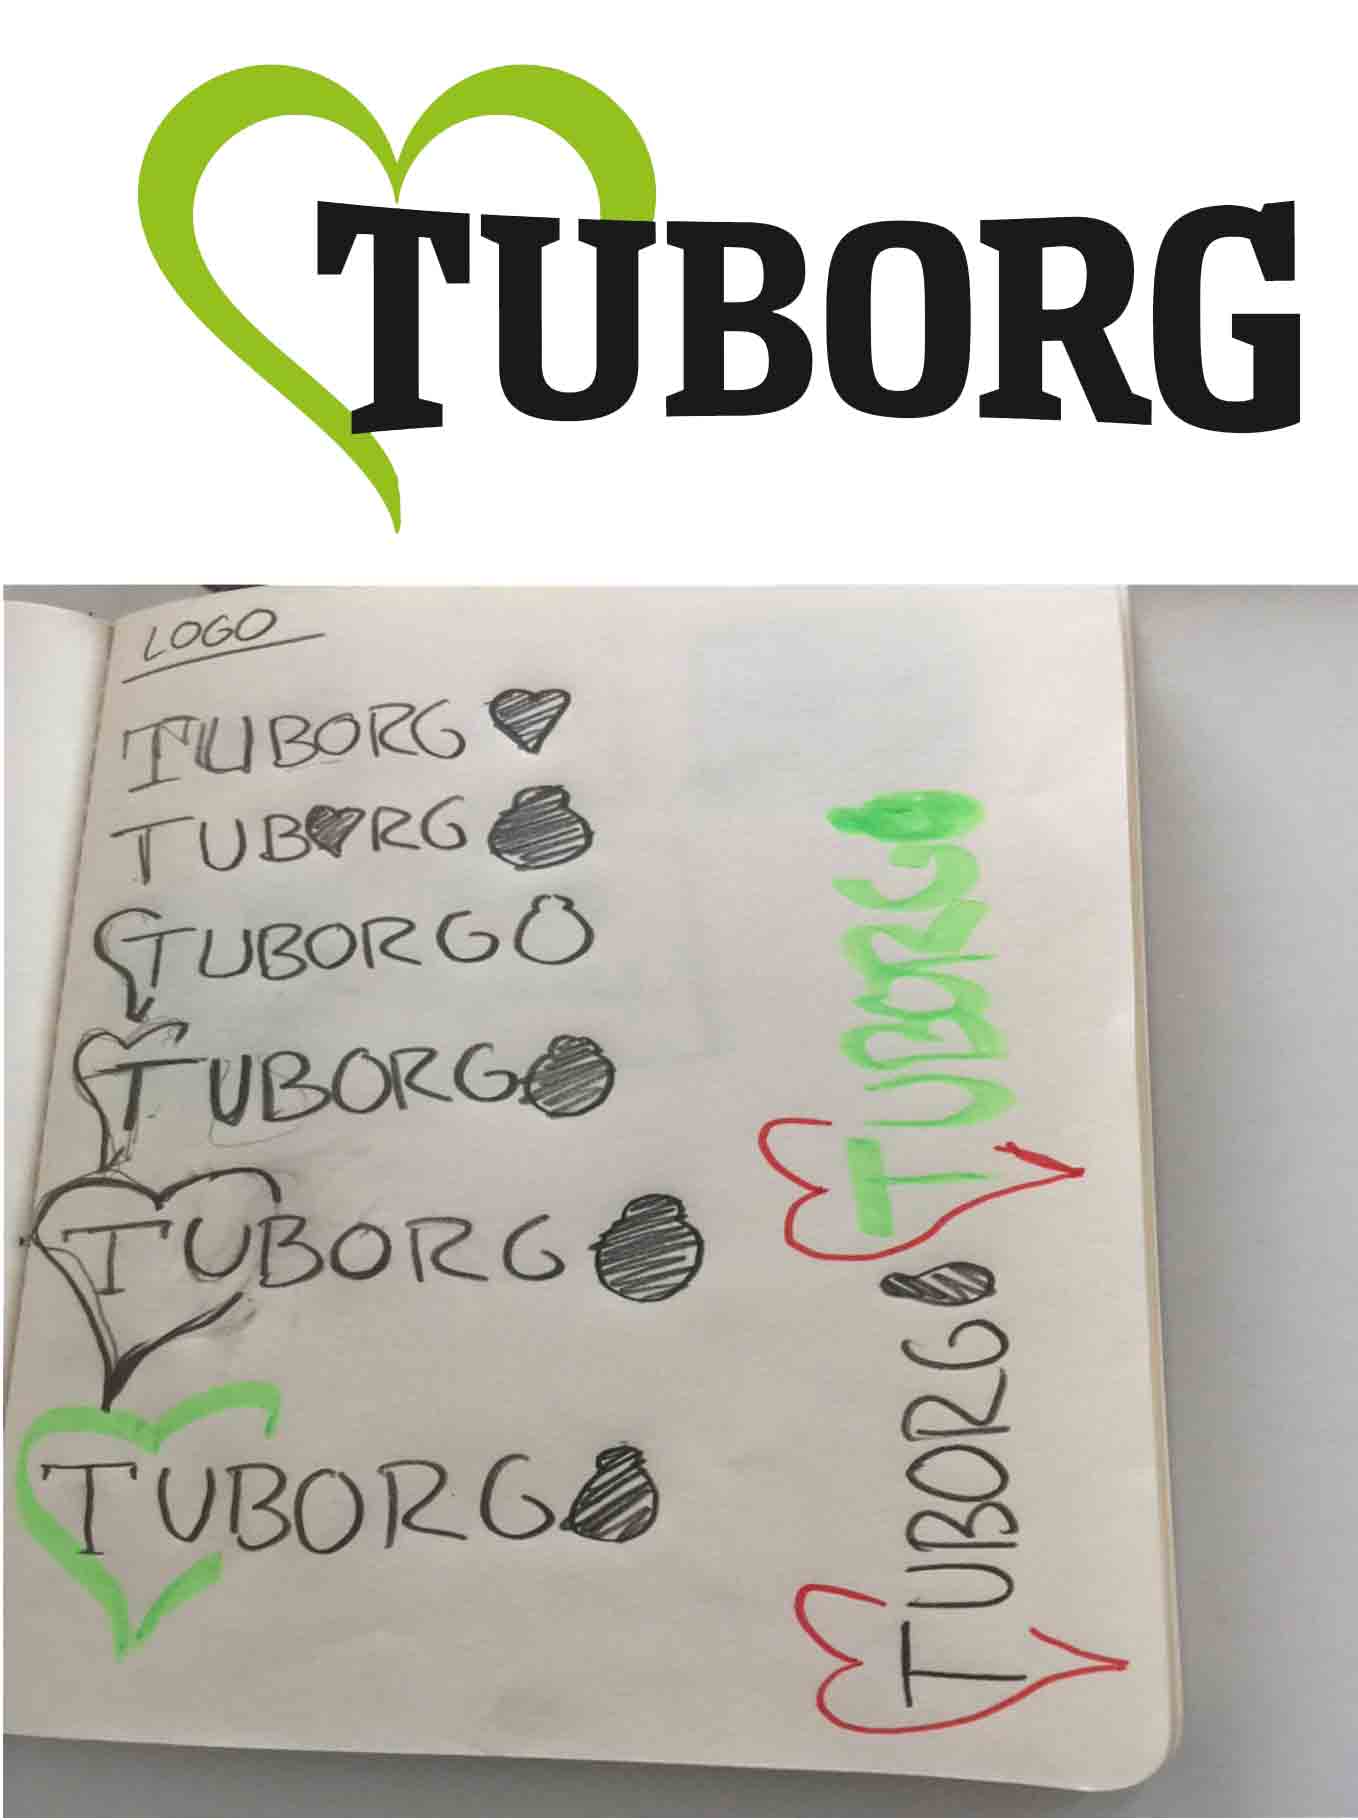 TUBORG
LOGO
TUBORG
TUB♥RG
TUBORG
TUBORG
TUBORG
TUBORG
TUBORG
TUBORG